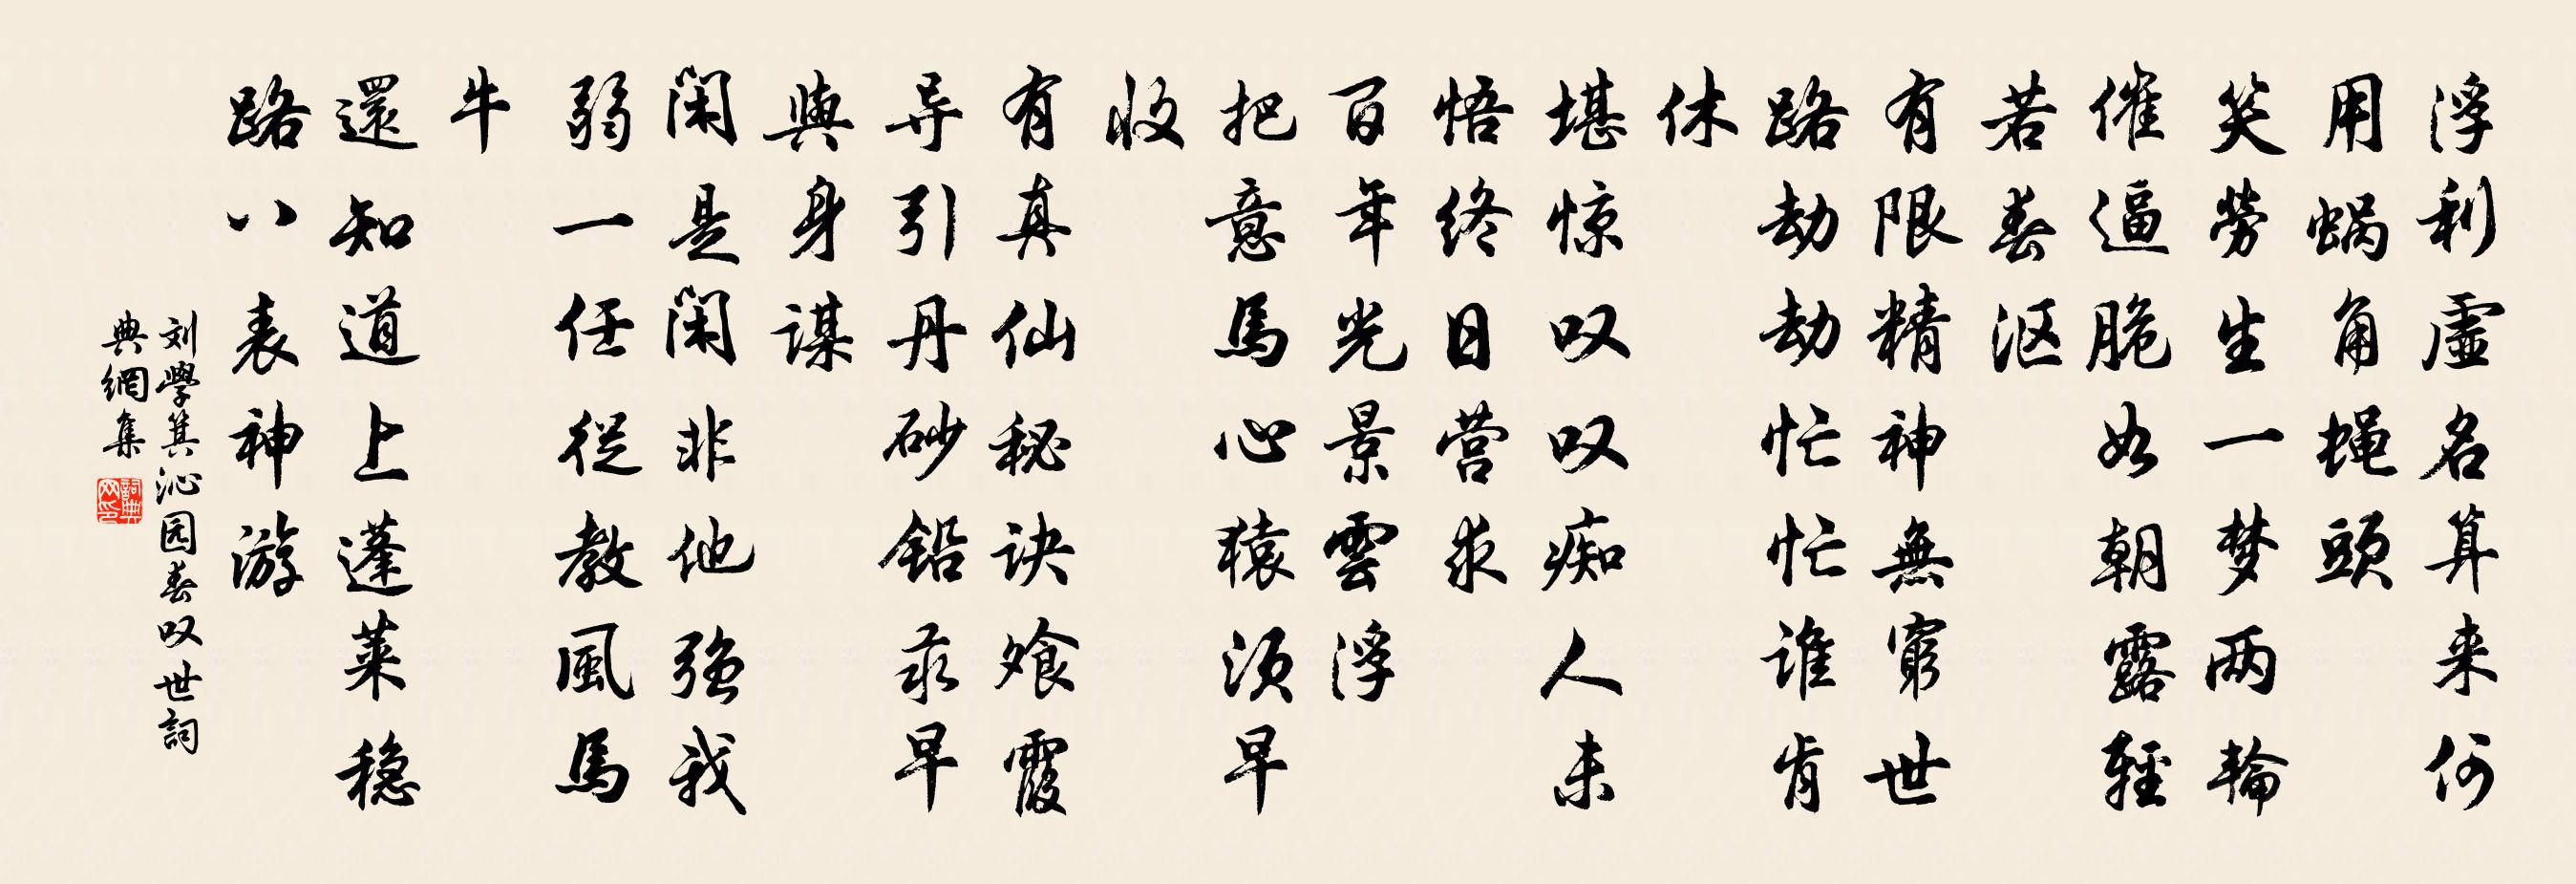 浮利虚名算来何
用蜗角蝇頭
笑劳生一梦两輪
催逼脆如朝露輕
若春沤
有限精神無窮世
路劫劫忙忙谁肯
休
堪惊叹叹痴人未
悟终日营求
百年光景雲浮
把意馬心猿须早
收
有真仙秘诀飡霞
导引丹砂铅汞早
與身谋
闲是闲非他强我
弱一任從教風馬
牛
還知道上蓬莱稳
路八表神游
刘學箕沁园春叹世詞
典網集
詞典网印